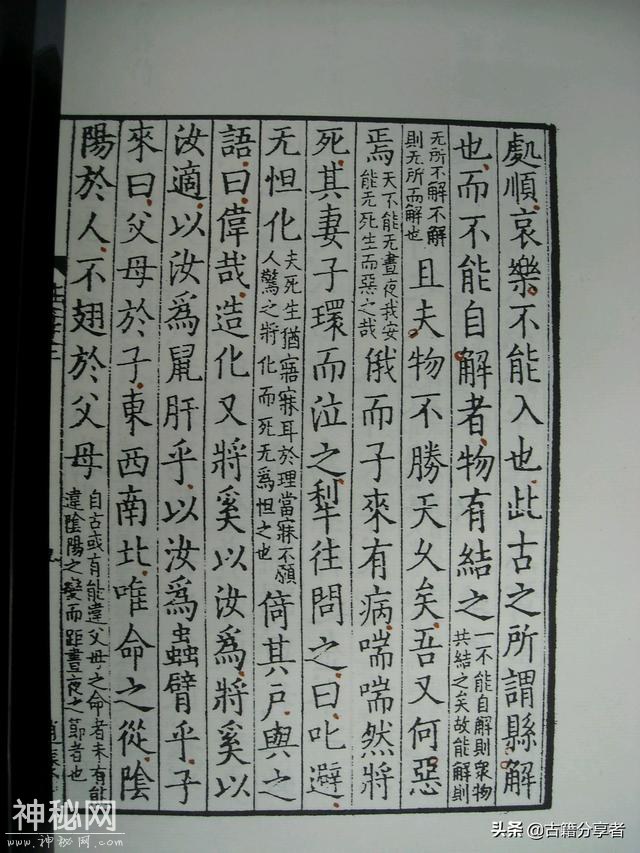 處順哀樂不能入也此古之所謂縣解
也而不能自解者物有結之一不能自解則衆物共結之矣故能解則
无所不解不解則无所而解也且夫物不勝天久矣吾又何惡
焉天不能无晝夜我安能无死生而惡之哉俄而子來有病喘喘然將
死其妻子環而泣之犁往問之曰叱避
无怛化夫死生猶寤寐耳於理當寐不願人驚之將化而死无爲怛之也倚其戶與之
語曰偉哉造化又將奚以汝爲將奚以
汝適以汝爲鼠肝乎以汝爲蟲臂乎子
來曰父母於子東西南北唯命之從陰
陽於人不翅於父母自古或有能違父母之命者未有能違陰陽之變而距晝夜之節者也
神秘网
www.神秘网.com
头条 @古籍分享者